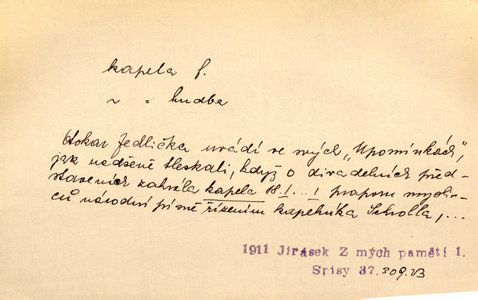 kapela f.
~ „ hudba
Otokar Jedlička uvádí ve svých „Upomínkách“,
jak nadšeně tleskali, když o divadelních před-
staveních zahrála kapela 18 I...I praporu mysli-
vců národní písně řízením kapelníka Scholla,...
1911 Jirásek Z mých pamětí 1.
Spisy 37.309.23